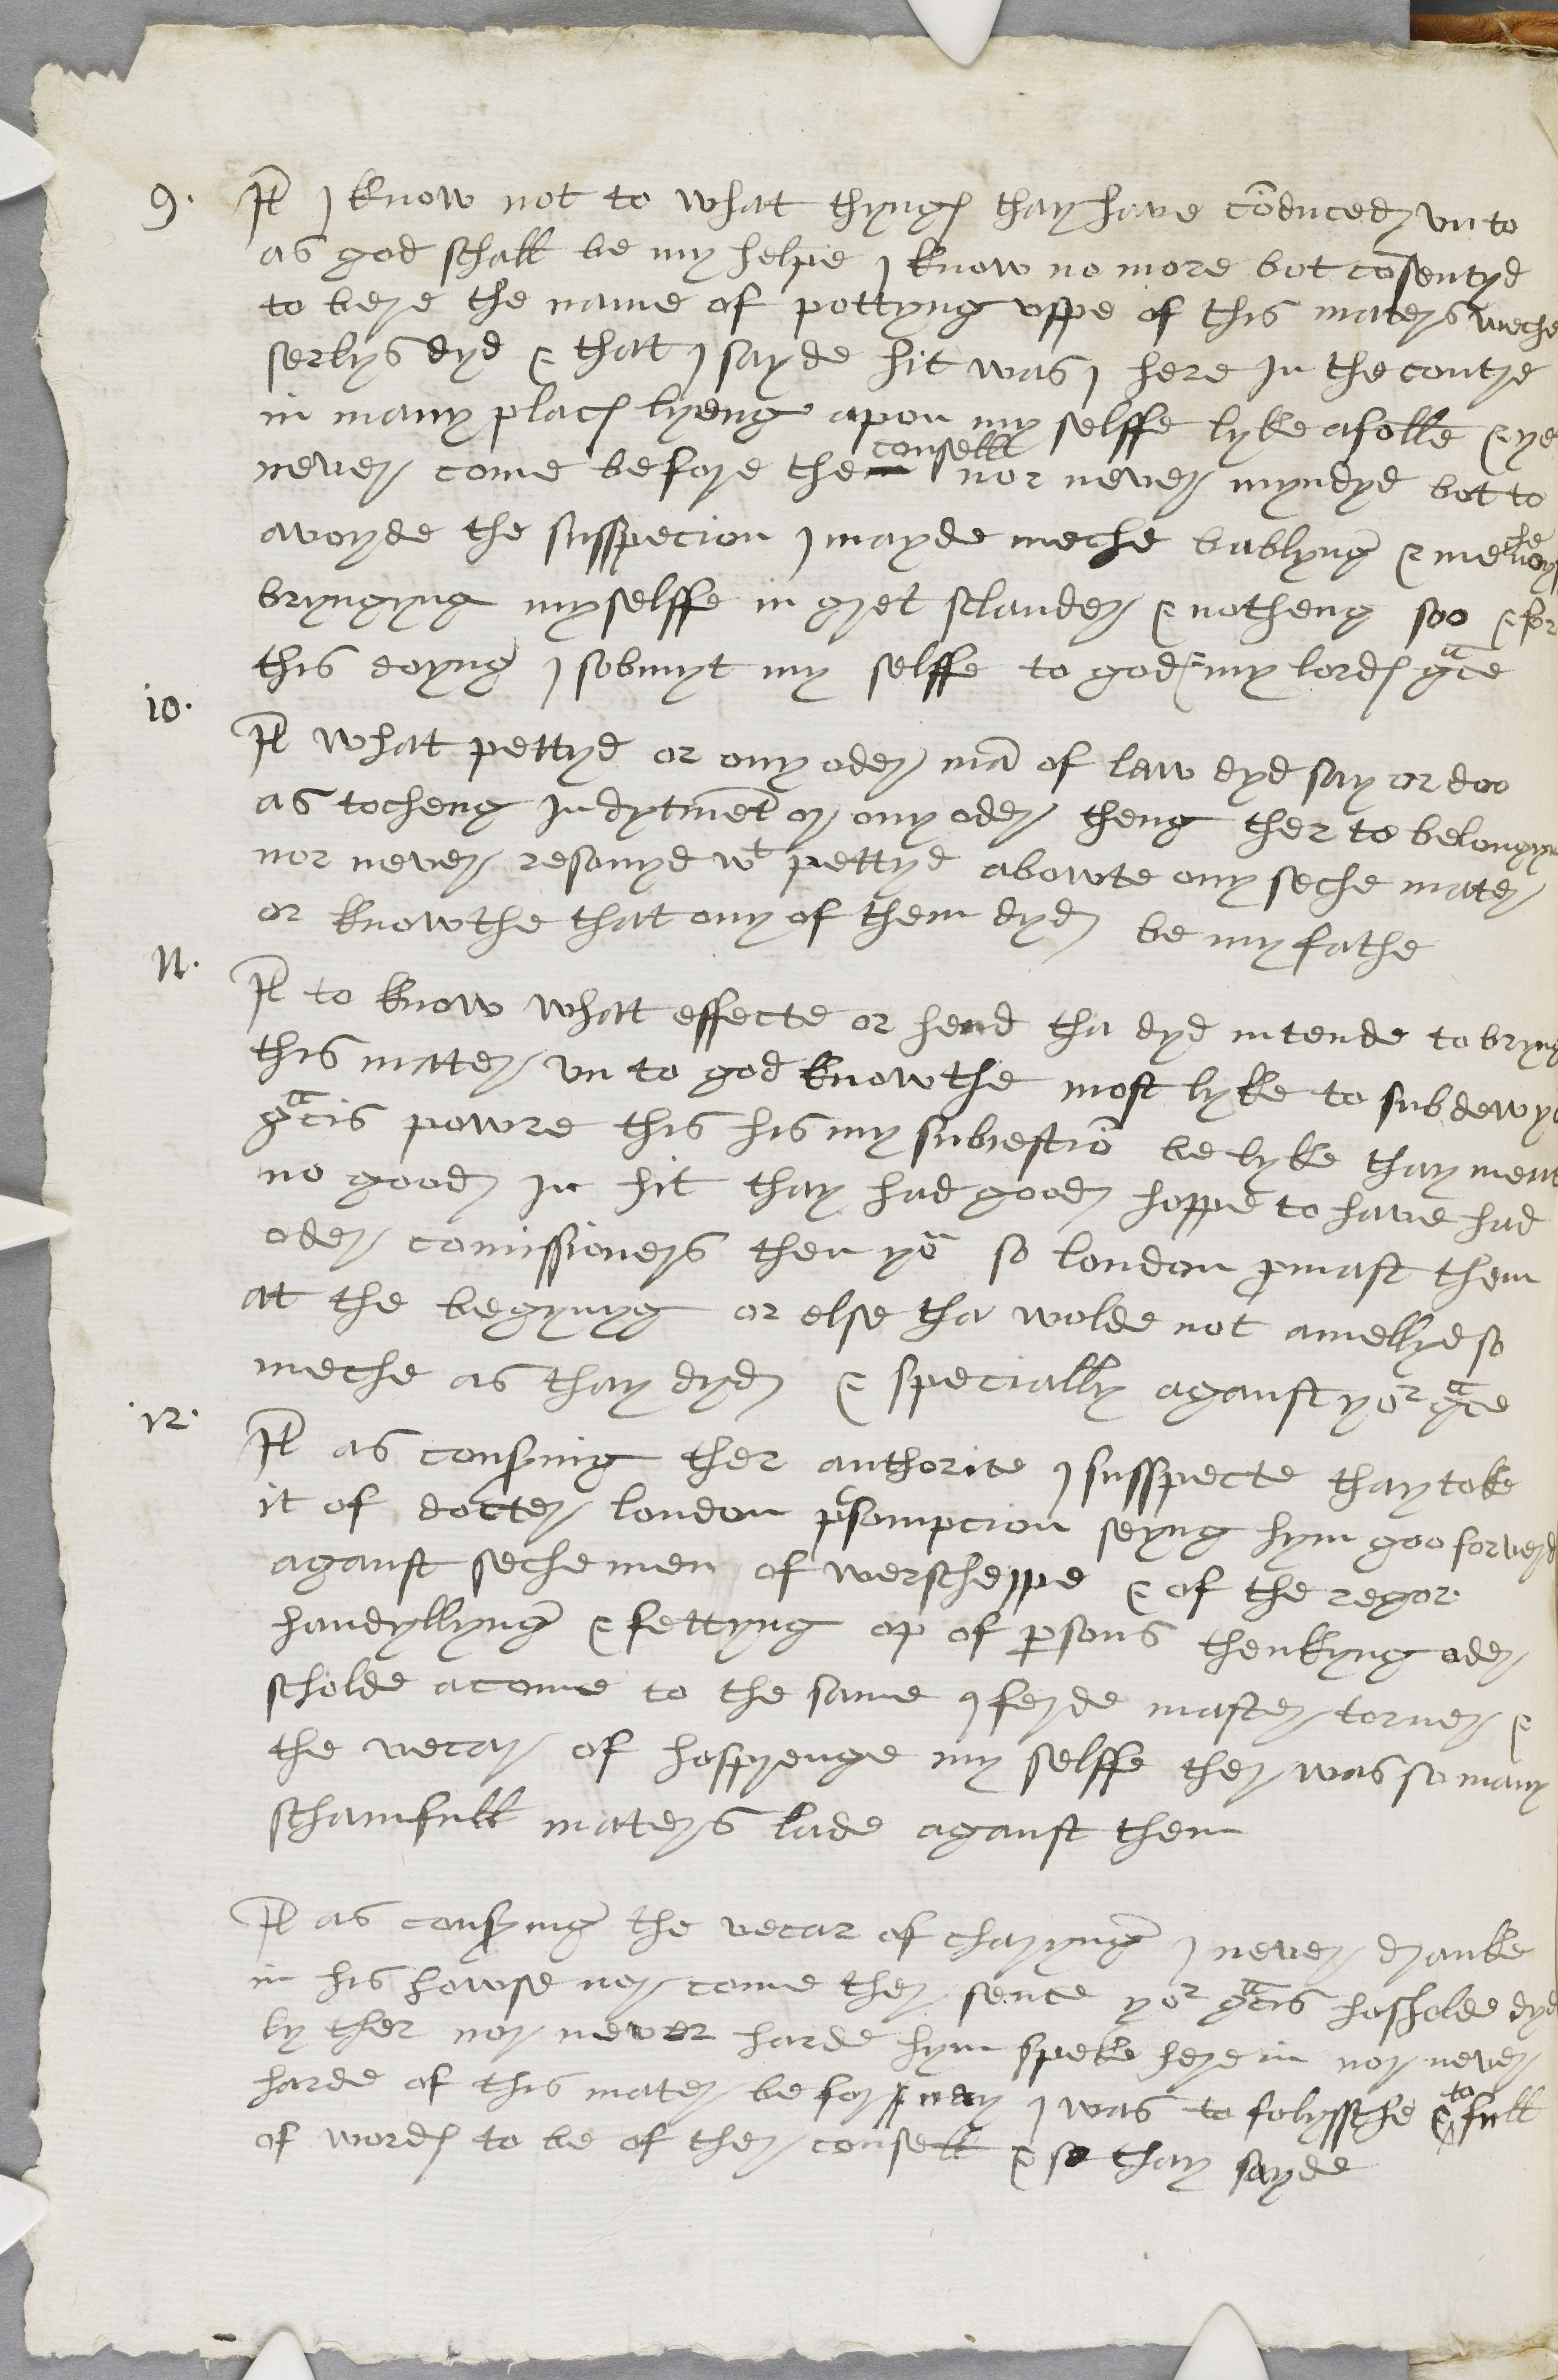 9. It I know not to what thynges thay have cōduced vnto
as god schall be my helpe I know no more bot cōsentyd
to bere the name of pottyng vppe of this maters weche
serlys dyd & that I sayde hit was I here in the contre
in many places lyeng apon my selffe lyke a folle & yet
never come before the consell nor never myndyd bot to
avoyde the susspecion I mayde meche bablyng & meche
bryngyng my selffe in gret sclander & notheng soo & for
this doyng I sobmyt my selffe to god & my lordes grace
10. It what pettyd or ony oder mā of law dyd say or doo
as tocheng indytmēt or ony oder theng ther to belongyng
nor never resonyd wt pettyd abowte ony seche mater
or knowthe that ony of them dyd be my fathe
11. It to know what effecte or hend tha dyd intende to bryng
this mater vn to god knowthe most lyke to subdew yor
gracis powre this his my subiestiō be lyke thay ment
no good in hit thay had good hoppe to have had
oder comissioners then yō so london ꝓmast them
at the begynyg or else tha wolde not amellyd so
meche as thay dyd & specially aganst yor grace
12. It as consernig ther authorite I susspecte thay toke
it of docter london presompcion seyng hym goo forverd
aganst seche men of werscheppe & of the regor
handyllyng & fettyng op of persons thenkyng oder
scholde a come to the same I ferde master torner &
the vecar of hosprenge my selffe ther was so many
schamfull maters lade aganst them
It as conserning the vecar of charyng I never dranke
in his howse nor come ther sence yor gracis hosholde dyd
ly ther nor never harde hym speke here in nor never
harde of this mater be for I was to folyssche & to full
of wordes to be of ther consell & so thay sayde